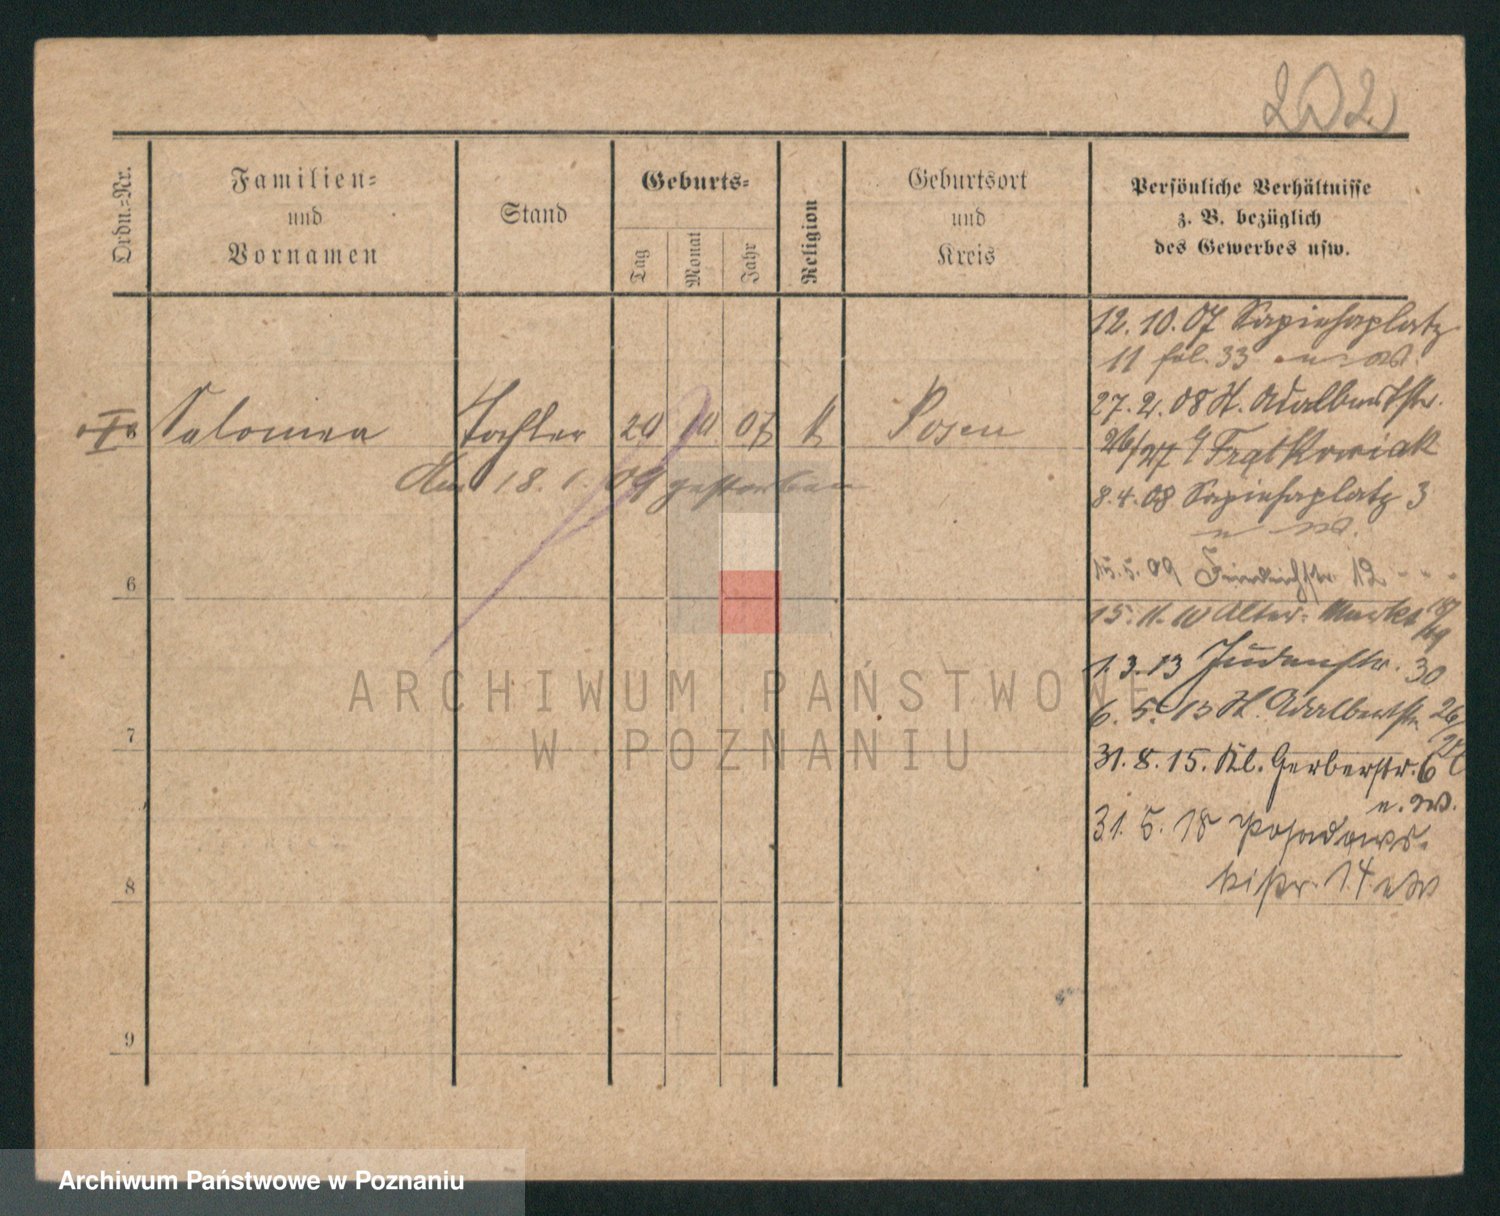 202
Ordn.-Nr.
Familien-
und
Vornamen
Stand
Geburts-
Tag
Monat
Jahr
Religion
Geburtsort
und
Kreis
Persönliche Verhältnisse
z. B. bezüglich
des Gewerbes usw.
12. 10. 07 Sapiehaplatz
11 33
27. 2. 08 St. Adalbertstr.
I Salomea Tochter 20 10 07 k Posen
26/27 Frątkowiak
Am 18. 1. 09 gestorben
8. 4. 08 Sapiehaplatz 3
15. 5. 09 Friedrichstr. 12 - - -
6
15. 11. 10 Alter Markt
1. 3. 13 Judenstr. 30
6. 5. 13 St. Adalbertstr. 26/
27
7
31. 8. 15. Kl. Gerberstr. 6
31. 5. 18 Posadows-
kistr. 14.
8
9
ARCHIWUM PAŃSTWOWE
W POZNANIU
Archiwum Państwowe w Poznaniu